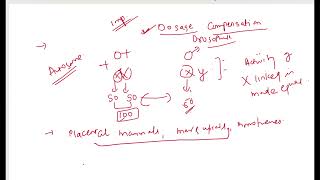 imp
Dosage Compensation
Drosophila
→ Autosome + O+ O♂
X X X y
Activity of
X linked in
made equal
50 50 50
100
→ Placental mammals, marsupials, monotremes